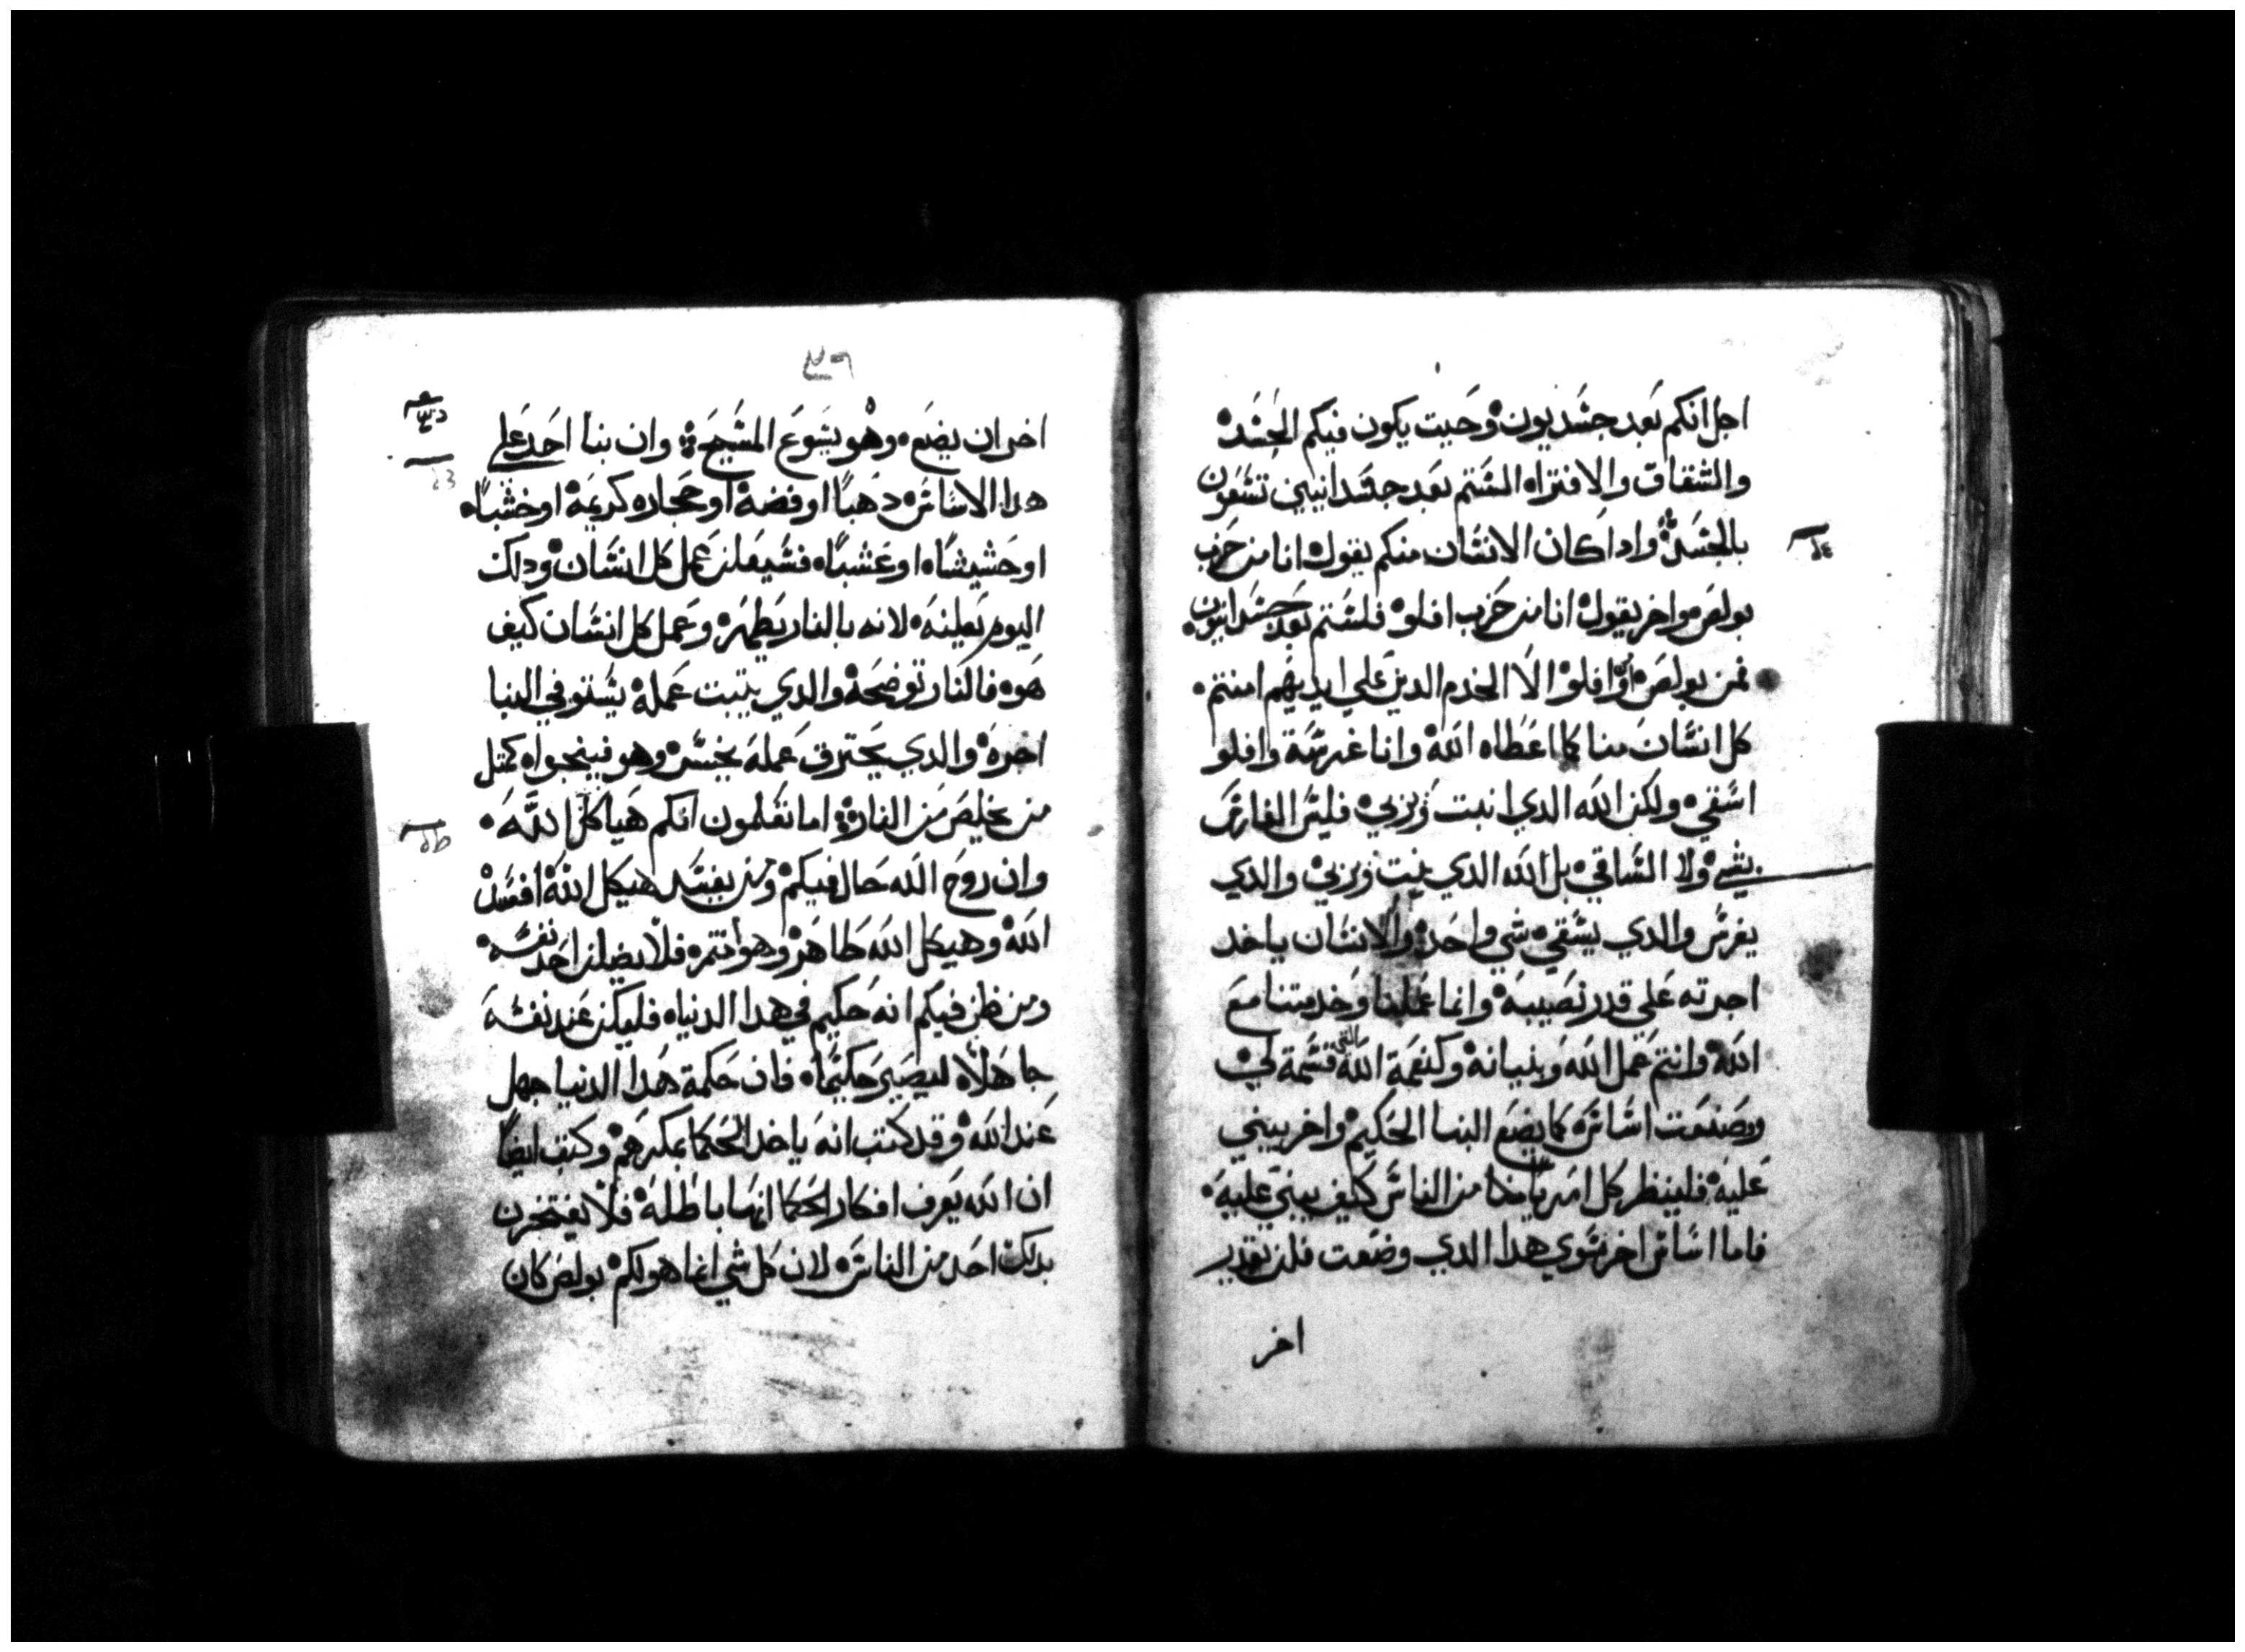 اجل انكم بعد جسديون وحيت يكون فيكم الحسد
والشقاق والافتراه الستم بعد جسدانيين تسعون
بالجسد وادا كان الانسان منكم يقول انا من حزب
بولص واخر يقول انا من حزب افلو فلستم بعد جسدانيون
فمن بولص او افلو الا الخدم الدين على ايديهم امنتم
كل انسان منا كما اعطاه الله وانا غرسة وافلو
اسقي ولكن الله الدي انبت وربي فليس الغارس
بشي ولا الساقي بل الله الدي ينبت ويربي والدي
يغرس والدي يسقي شي واحد والانسان ياخد
اجرته علي قدر نصيبه وانما عملنا وخدمتنا مع
الله وانتم عمل الله وبنيانه وكنعمة الله التي قسمة لي
وصنعت اساس كما يضع البنا الحكيم واخر يبني
عليه فلينظر كل امر منا من الناس كيف يبني عليه
فاما اساس اخر سوي هدا الدي وضعت فلن يقدر
اخر
اخر ان يضع وهو يسوع المسيح وان بنا احد علي
هدا الاساس دهبا او فضة او حجاره كريمة او خشبا
او حشيشا او عشبا فسيعلن عمل كل انسان ودلك
اليوم يعلنه لانه بالنار يطهر وعمل كل انسان كيف
هو فالنار توضحة والدي يتبت عملة يستوفي البنا
اجره والدي يحترق عمله يخسر وهو فينجوا كمتل
من يخلص من النار اما تعلمون انكم هياكل الله
وان روح الله حال فيكم ومن يفسد هيكل الله افسد
الله وهيكل الله طاهر وهو انتم فلا يضلن احد نفسه
ومن ظن فيكم انه حكيم في هدا الدنيا فليكن عند نفسه
جاهلا ليصير حكيما فان حكمة هدا الدنيا جهل
عند الله وقد كتب انه ياخد الحكما بمكرهم وكتب ايضا
ان الله يعرف افكار الحكما انها باطلة فلا يفتخرن
بدلك احد من الناس لان كل شي انما هو لكم بولص كان